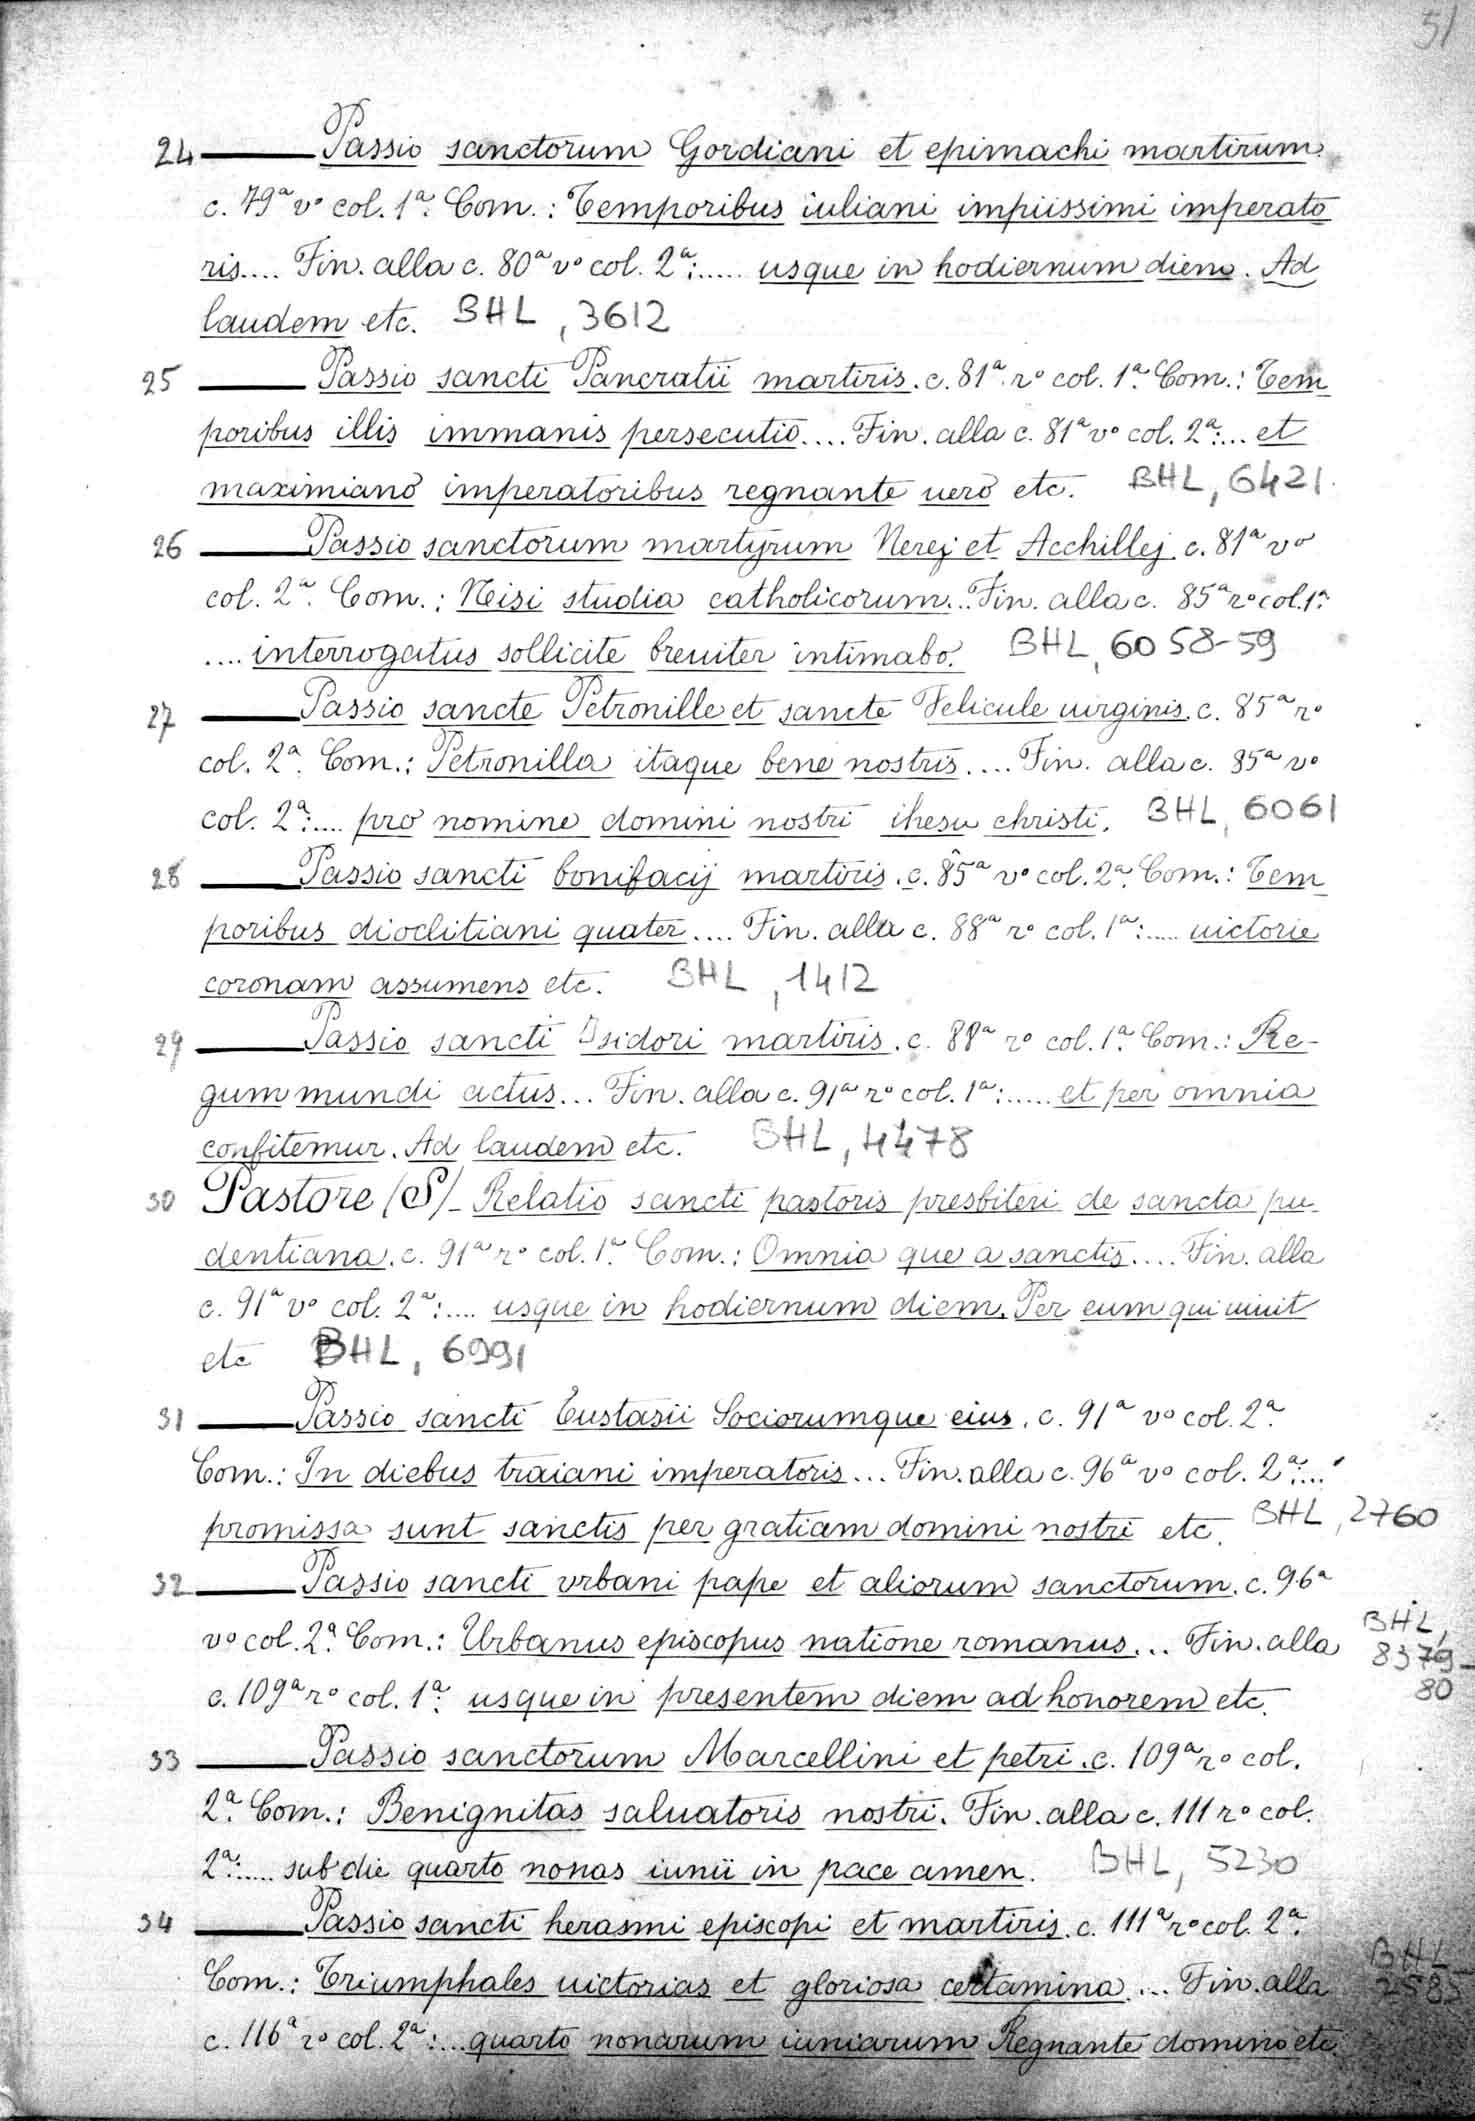 51
24 ——— Passio sanctorum Gordiani et epimachi martirum.
c. 79ª vº col. 1ª. Com.: Temporibus iuliani impiissimi imperato
ris.... Fin. alla c. 80ª vº col. 2ª:..... usque in hodiernum diem. Ad
laudem etc. BHL, 3612
25 ——— Passio sancti Pancratii martiris. c. 81ª rº col. 1ª. Com.: Tem
poribus illis immanis persecutio.... Fin. alla c. 81ª vº col. 2ª:... et
maximiano imperatoribus regnante uero etc. BHL, 6421.
26 ——— Passio sanctorum martyrum Nerej et Acchillej. c. 81ª vº
col. 2ª. Com.: Neisi studia catholicorum... Fin. alla c. 85ª rº col. 1ª:
.... interrogatus sollicite breuiter intimabo. BHL, 6058-59
27 ——— Passio sancte Petronille et sancte Felicule uirginis. c. 85ª rº
col. 2ª. Com.: Petronilla itaque bene nostris.... Fin. alla c. 85ª vº
col. 2ª:.... pro nomine domini nostri ihesu christi. BHL, 6061
28 ——— Passio sancti bonifacij martiris. c. 85ª vº col. 2ª. Com.: Tem
poribus dioclitiani quater.... Fin. alla c. 88ª rº col. 1ª:..... uictorie
coronam assumens etc. BHL, 1412
29 ——— Passio sancti Isidori martiris. c. 88ª rº col. 1ª. Com.: Re-
gum mundi actus... Fin. alla c. 91ª rº col. 1ª:..... et per omnia
confitemur. Ad laudem etc. BHL, 4478
30 Pastore (S) - Relatio sancti pastoris presbiteri de sancta pu
dentiana. c. 91ª rº col. 1ª. Com.: Omnia que a sanctis.... Fin. alla
c. 91ª vº col. 2ª:.... usque in hodiernum diem. Per eum qui uiuit
etc BHL, 6991
31 ——— Passio sancti Eustasii Sociorumque eius. c. 91ª vº col. 2ª.
Com.: In diebus traiani imperatoris... Fin. alla c. 96ª vº col. 2ª:...
promissa sunt sanctis per gratiam domini nostri etc. BHL, 2760
32 ——— Passio sancti vrbani pape et aliorum sanctorum. c. 96ª
vº col. 2ª. Com.: Urbanus episcopus natione romanus... Fin. alla BHL, 8379-80
c. 109ª rº col. 1ª: usque in presentem diem ad honorem etc.
33 ——— Passio sanctorum Marcellini et petri. c. 109ª rº col.
2ª. Com.: Benignitas saluatoris nostri. Fin. alla c. 111 rº col.
2ª:..... sub die quarto nonas iunii in pace amen. BHL, 5230
34 ——— Passio sancti herasmi episcopi et martiris. c. 111ª rº col. 2ª.
Com.: Triumphales uictorias et gloriosa certamina.... Fin. alla BHL 2585
c. 116ª rº col. 2ª:... quarto nonarum iuniarum Regnante domino etc.